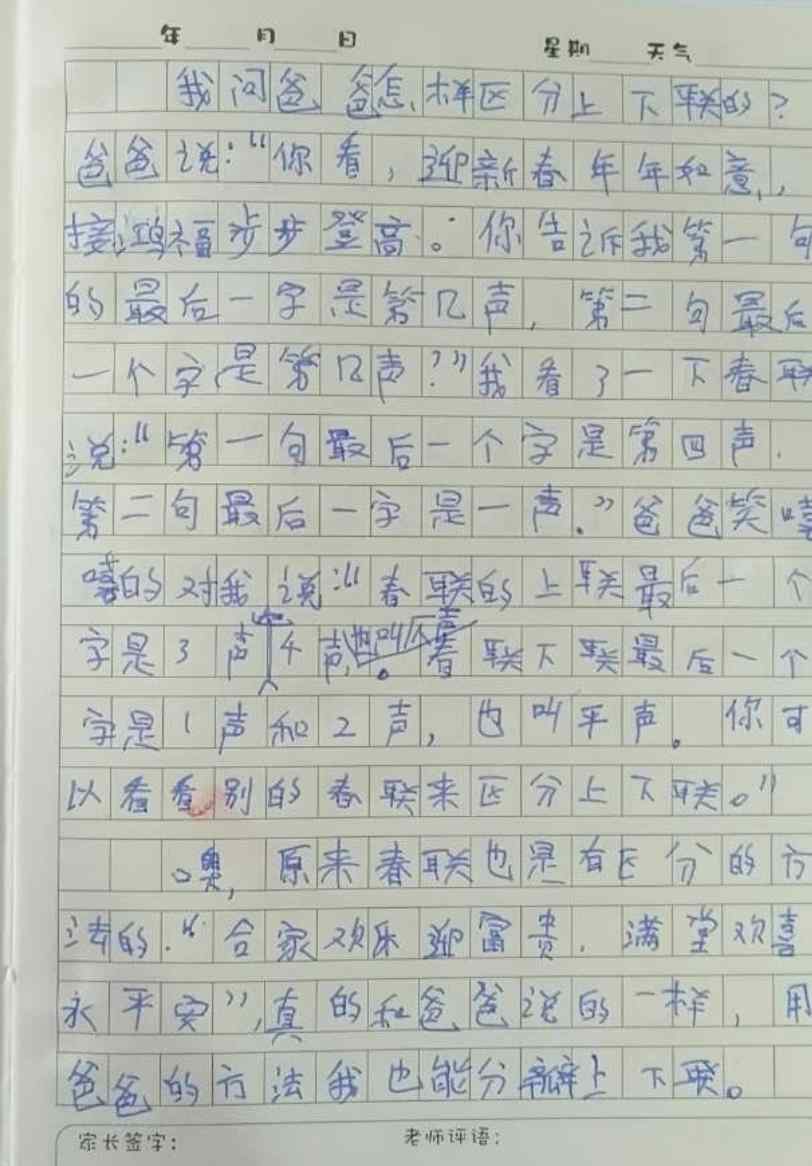 年 月 日 星期 天气
我问爸爸怎样区分上下联的?
爸爸说:“你看,迎新春年年如意,
接鸿福步步登高。你告诉我第一句
的最后一字是第几声,第二句最后
一个字是第几声?”我看了一下春联
说:“第一句最后一个字是第四声.
第二句最后一字是一声.”爸爸笑嘻
嘻的对我说:“春联的上联最后一个
字是3声 4声,也叫仄声。春联下联最后一个
字是1声和2声,也叫平声。你可
以看看别的春联来区分上下联。”
噢,原来春联也是有区分的方
法的.“合家欢乐迎富贵.满堂欢喜
永平安”,真的和爸爸说的一样,用
爸爸的方法我也能分辨上下联。
家长签字: 老师评语: